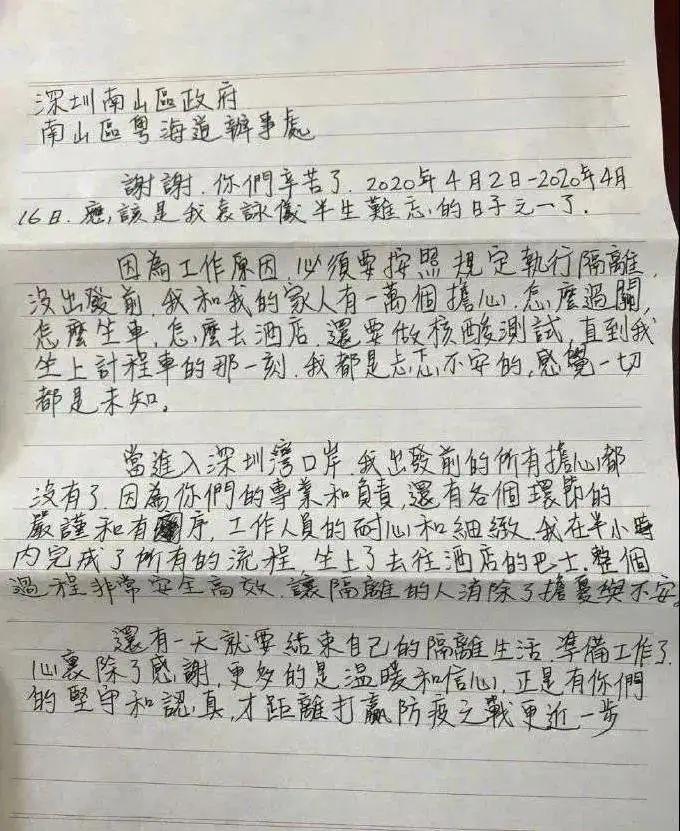 深圳南山區政府
南山區粵海道辦事處
謝謝.你們辛苦了.2020年4月2日-2020年4月
16日.應該是我袁詠儀半生難忘的日子元一了.
因為工作原因,必須要按照規定執行隔離,
沒出發前,我和我的家人有一萬個擔心,怎麼過關,
怎麼坐車,怎麼去酒店,還要做核酸測試,直到我
坐上計程車的那一刻.我都是忐忑不安的,感覺一切
都是未知。
當進入深圳灣口岸.我出發前的所有擔心都
沒有了.因為你們的專業和負責,還有各個環節的
嚴謹和有序,工作人員的耐心和細緻.我在半小時
內完成了所有的流程,坐上了去往酒店的巴士.整個
過程非常安全高效.讓隔離的人消除了擔憂與不安。
還有一天就要結束自己的隔離生活,準備工作了.
心裏除了感謝,更多的是溫暖和信心,正是有你們
的堅守和認真,才距離打贏防疫之戰更近一步